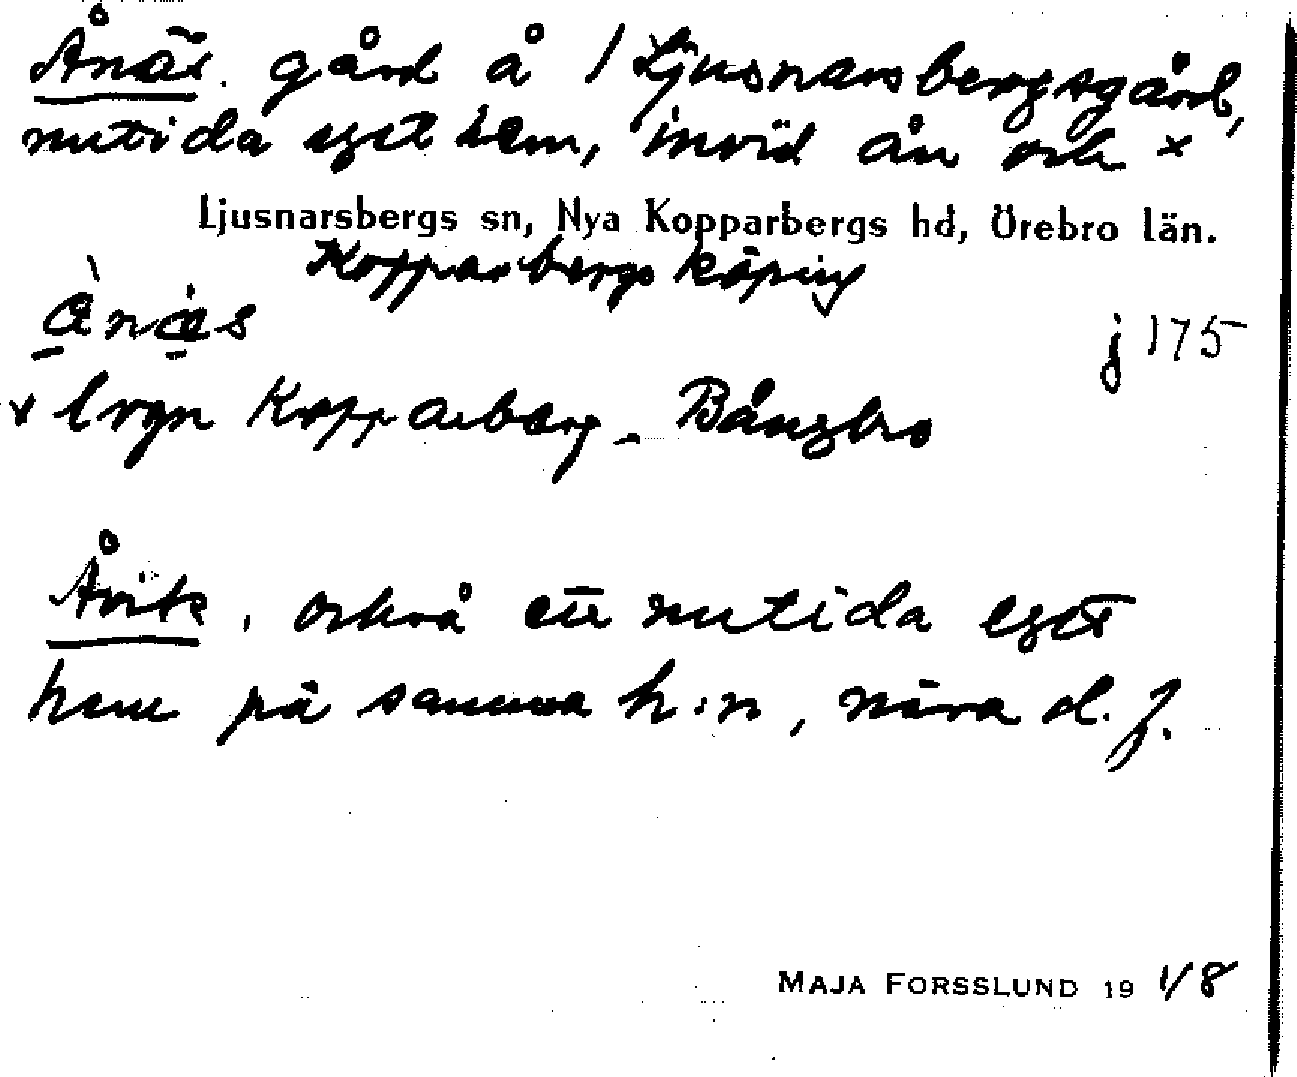 Ånäs. gård å 1 Ljusnarsbergsgård,
nutida eget hem, invid ån och ×
Ljusnarsbergs sn, Nya Kopparbergs hd, Örebro län.
Kopparbergs köping
ànäs
j 175
× lvgn Kopparberg – Bångbro
Åvik, också ett nutida eget
hem på samma h:n, nära d. f.
MAJA FORSSLUND 19 1/8